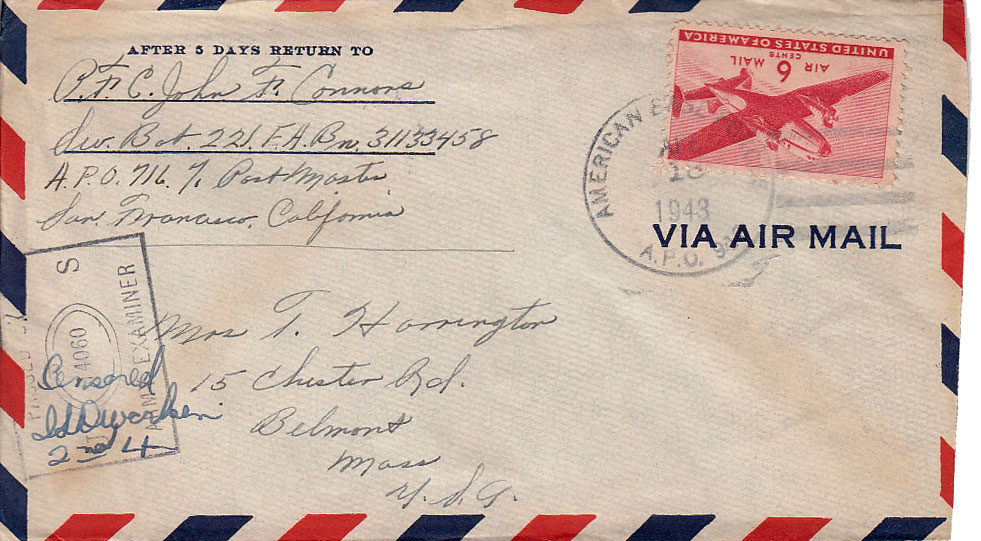 AFTER 5 DAYS RETURN TO
P.F.C. John F. Connors
Sev. Bat. 221. F.A.Bn. 31133458
A.P.O. 716. % Post Master
San. Francisco, California
UNITED STATES OF AMERICA
AIR MAIL
6
CENTS
AMERICAN BASE
18
1943
A.P.O.
VIA AIR MAIL
PASSED BY
S
4060
ARMY EXAMINER
Censored
2nd Lt
Mrs T. Harrington
15 Chester Rd.
Belmont
Mass
U.S.A.